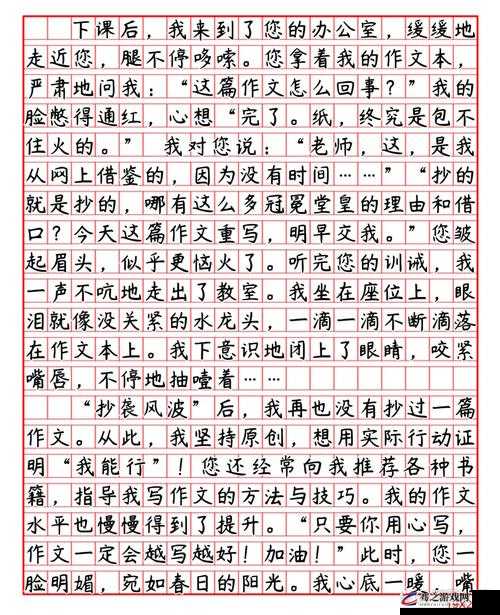 下课后，我来到了您的办公室，缓缓地
走近您，腿不停哆嗦。您拿着我的作文本，
严肃地问我：“这篇作文怎么回事？”我的
脸憋得通红，心想“完了。纸，终究是包不
住火的。” 我对您说：“老师，这，是我
从网上借鉴的，因为没有时间……”“抄的
就是抄的，哪有这么多冠冕堂皇的理由和借
口？今天这篇作文重写，明早交我。”您皱
起眉头，似乎更恼火了。听完您的训诫，我
一声不吭地走出了教室。我坐在座位上，眼
泪就像没关紧的水龙头，一滴一滴不断滴落
在作文本上。我下意识地闭上了眼睛，咬紧
嘴唇，不停地抽噎着……
“抄袭风波”后，我再也没有抄过一篇
作文。从此，我坚持原创，想用实际行动证
明“我能行”！您还经常向我推荐各种书
籍，指导我写作文的方法与技巧。我的作文
水平也慢慢得到了提升。“只要你用心写，
作文一定会越写越好！加油！”此时，您一
脸明媚，宛如春日的阳光。我心底一暖，嘴